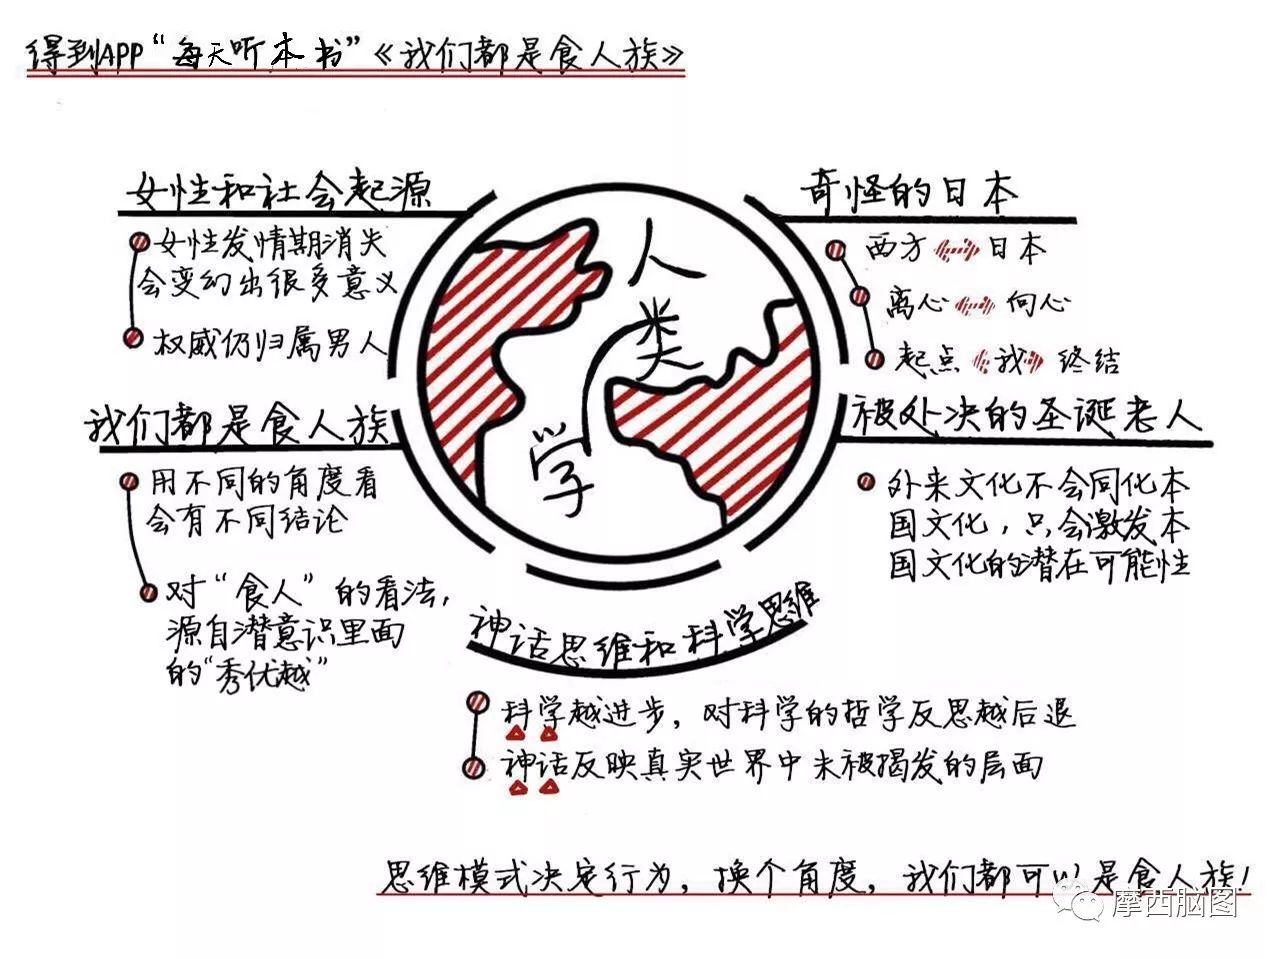 得到APP“每天听本书”《我们都是食人族》
女性和社会起源
女性发情期消失
会变幻出很多意义
权威仍归属男人
我们都是食人族
用不同的角度看
会有不同结论
对“食人”的看法，
源自潜意识里面
的“秀优越”
人
类
学
奇怪的日本
西方 日本
离心 向心
起点《我》终结
被处决的圣诞老人
外来文化不会同化本
国文化，只会激发本
国文化的潜在可能性
神话思维和科学思维
科学越进步，对科学的哲学反思越后退
神话反映真实世界中未被揭发的层面
思维模式决定行为，换个角度，我们都可以是食人族！
摩西脑图